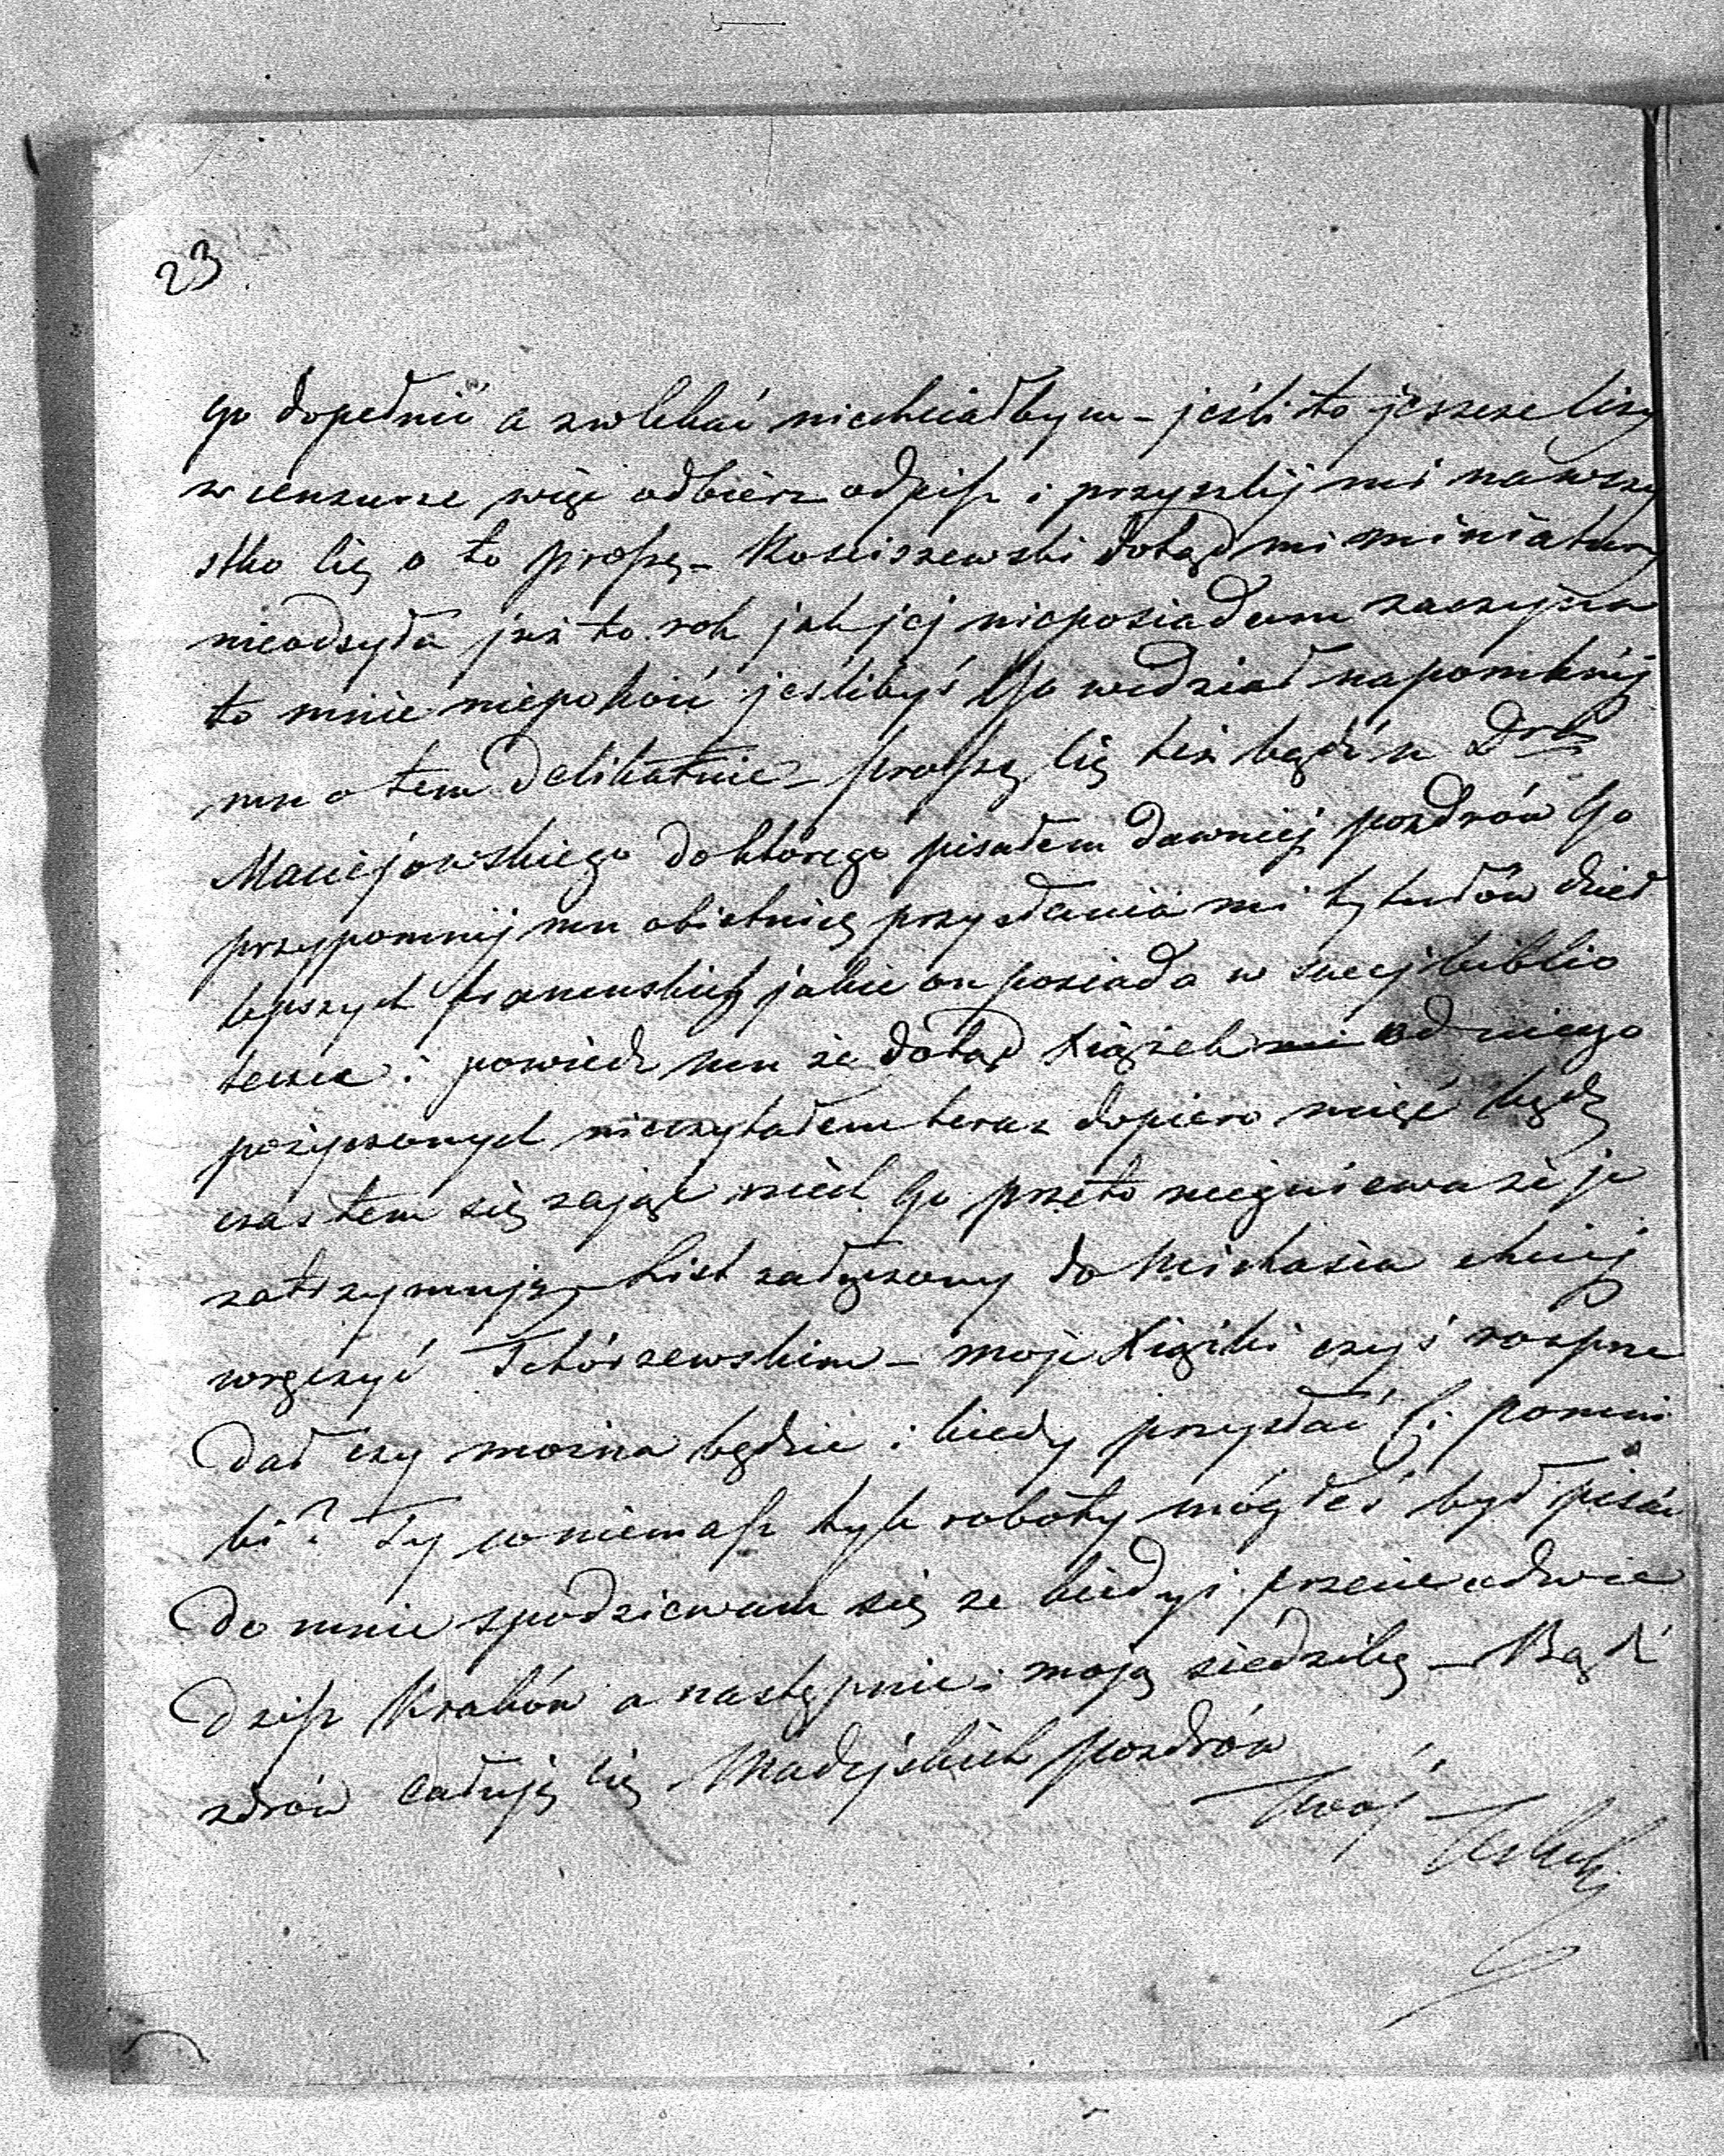 23
go dopełnić a zwlekać niechciałbym – jeśli to jeszcze leży
w cenzurze więc odbierz odpis i przyszlij mi na wszy
stko cię o to proszę – Kościszewski dotąd mi miniatury
nieodsyła już to rok jak jej nieposiadam zaczyna
to mnie niepokoić jeślibyś Go widział napomknij
mu o tem delikatnie – proszę cię też bądź u Dra
Maciejowskiego do którego pisałem dawniej pozdrów Go
przypomnij mu obietnicę przysłania mi tytułów dzieł
lepszych francuskich jakie on posiada w swej biblio
tece i powiedz mu że dotąd Xiążek od niego
pożyczonych nieczytałem teraz dopiero mieć będę
czas tem się zająć niech Go przeto niegniewa że je
zatrzymuję – List załączony do Michasia chciej
wręczyć Tchórzewskim – moje Xiążki czyś rozprze
dał czy można będzie i kiedy przysłać Ci pomni
ki? Ty co niemasz tyle roboty mógłeś był pisać
do mnie spodziewam się że kiedyś przecie odwie
dzisz Kraków a następnie i moją siedzibę – Bądź
zdrów całuję cię Madejskich pozdrów
Twój